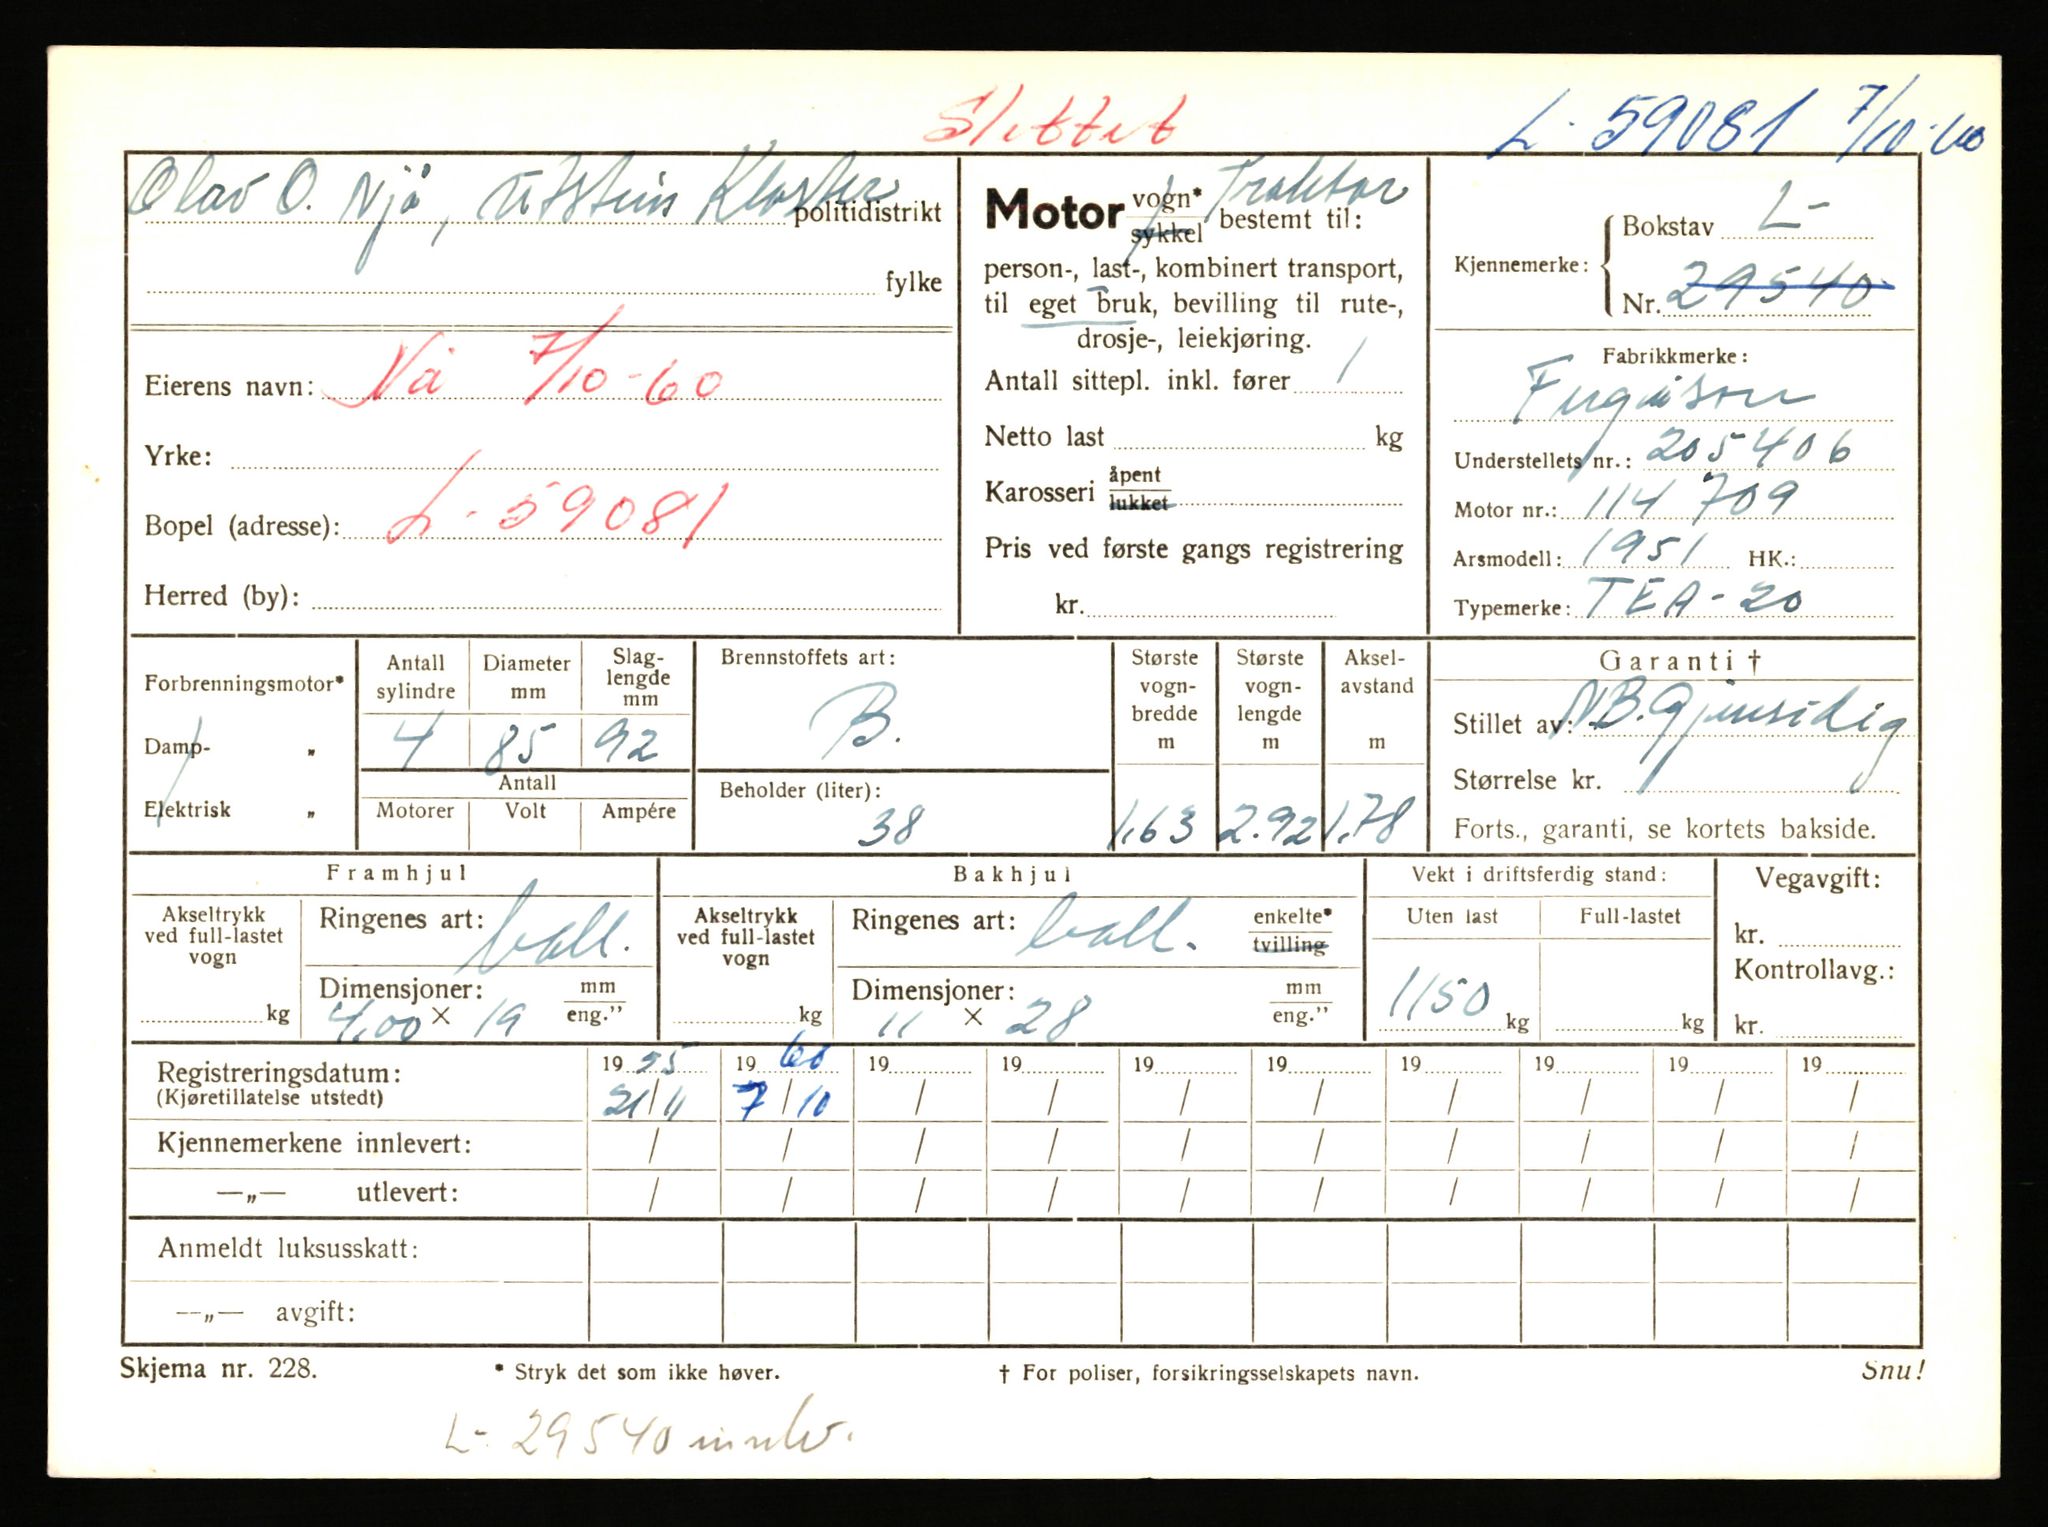 Slettet
L- 59081 7/10-60
Olav O. Njå, Utstein Kloster politidistrikt
fylke
Eierens navn: Nå 7/10-60
Yrke:
Bopel (adresse): L- 59081
Herred (by):
Motor vogn* sykkel bestemt til: Traktor
person-, last-, kombinert transport,
til eget bruk, bevilling til rute-,
drosje-, leiekjøring.
Antall sittepl. inkl. fører 1
Netto last kg
Karosseri åpent lukket
Pris ved første gangs registrering
kr.
Kjennemerke: Bokstav L-
Nr. 29540
Fabrikkmerke:
Ferguson
Understellets nr.: 205406
Motor nr.: 114 709
Arsmodell: 1951 HK.:
Typemerke: TEA-20
Forbrenningsmotor*
Damp- „
Elektrisk „
Antall sylindre Diameter mm Slag-lengde mm
4 85 92
Antall
Motorer Volt Ampére
Brennstoffets art:
B.
Beholder (liter):
38
Største vogn-bredde m Største vogn-lengde m Aksel-avstand m
1,63 2.92 1,78
Garanti †
Stillet av: N.B. Gjensidig
Størrelse kr.
Forts., garanti, se kortets bakside.
Framhjul
Akseltrykk ved full-lastet vogn
kg
Ringenes art: ball.
Dimensjoner: mm eng."
4,00 × 19
Bakhjul
Akseltrykk ved full-lastet vogn
kg
Ringenes art: ball. enkelte* tvilling
Dimensjoner: mm eng."
11 × 28
Vekt i driftsferdig stand:
Uten last Full-lastet
1150 kg kg
Vegavgift:
kr.
Kontrollavg.:
kr.
Registreringsdatum: 19 55 19 60 19 19 19 19 19 19 19 19
(Kjøretillatelse utstedt) 21/11 7/10 / / / / / / / /
Kjennemerkene innlevert: / / / / / / / / / /
—„— utlevert: / / / / / / / / / /
Anmeldt luksusskatt:
—„— avgift:
Skjema nr. 228. * Stryk det som ikke høver. † For poliser, forsikringsselskapets navn. Snu!
L- 29540 innlev.